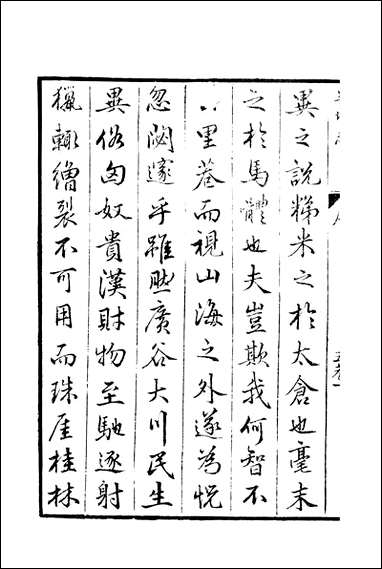 異之說稊米之於太倉也毫末
之於馬體也夫豈欺我何智不
八里菴而視山海之外遂為怳
忽閎遼乎雖然廣谷大川民生
異俗匈奴貴漢財物至馳逐射
獵輙繒裂不可用而珠厓桂林